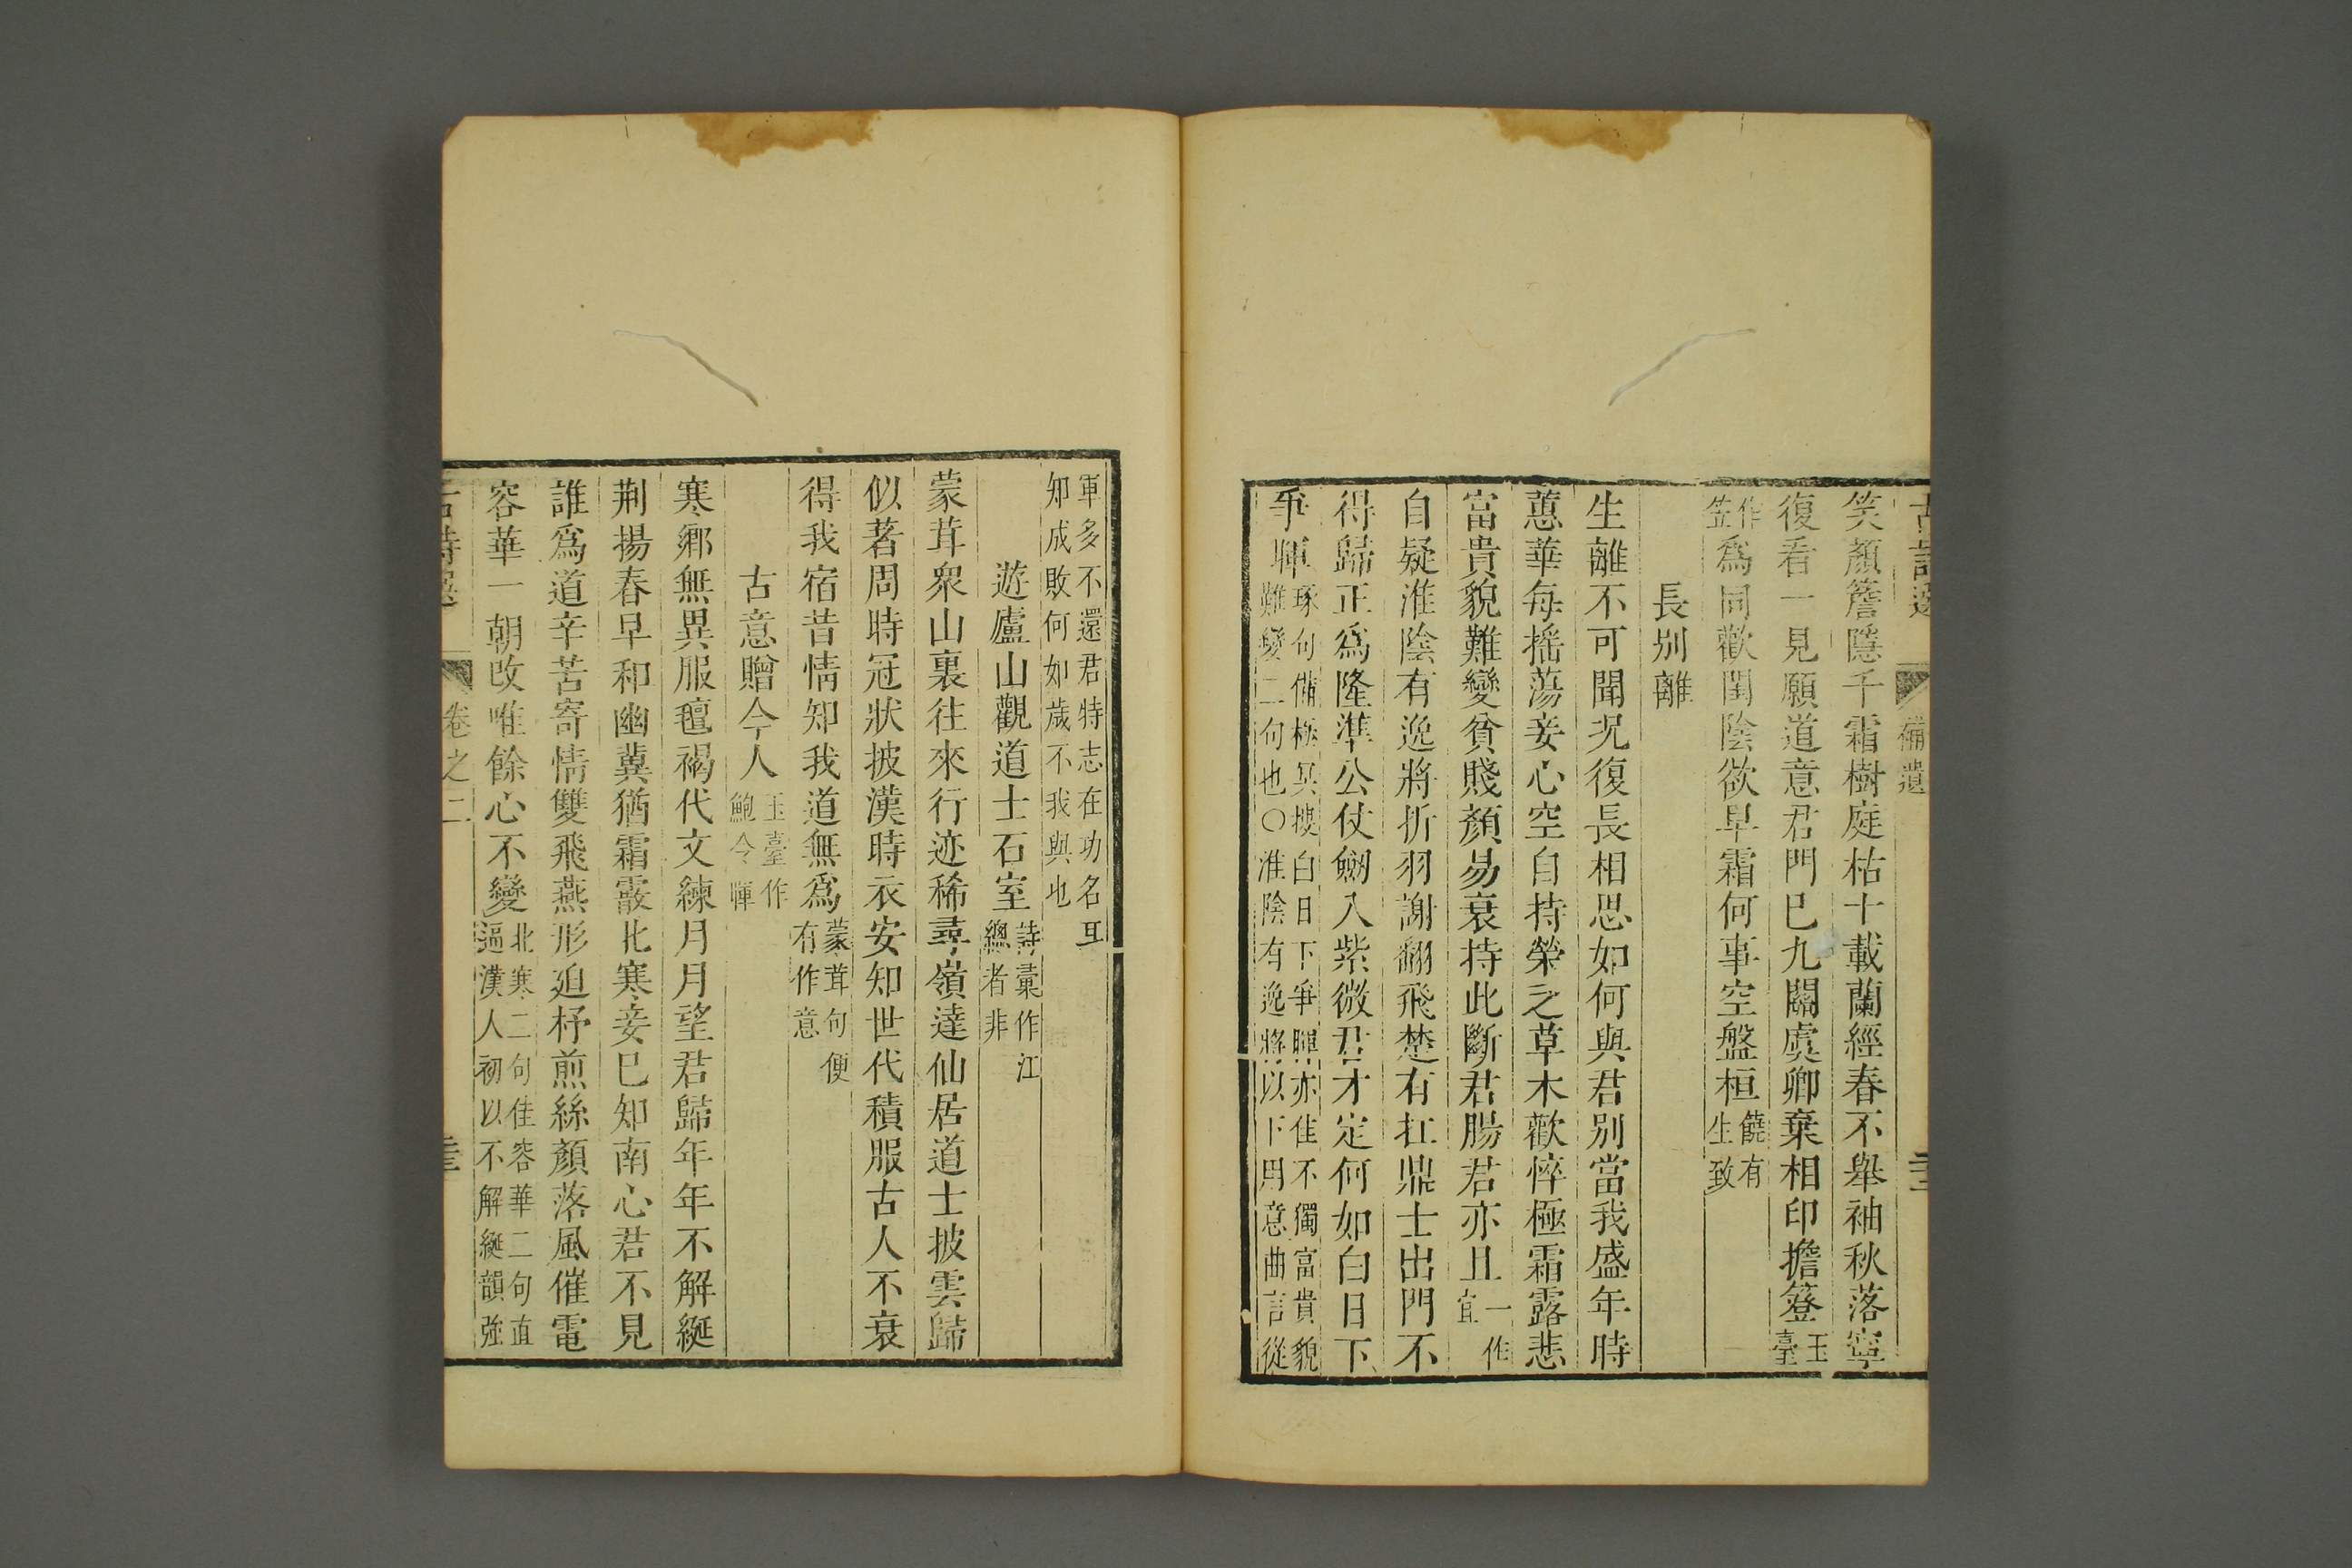 補遺
笑顏簷隱千霜樹庭枯十載蘭經春不舉袖秋落寧
復看一見願道意君門已九關虞卿棄相印擔簦玉臺
作笠為同歡閨陰欲早霜何事空盤桓饒有生致
長別離
生離不可聞况復長相思如何與君別當我盛年時
蕙華每摇蕩妾心空自持榮之草木歡悴極霜露悲
富貴貌難變貧賤顏易衰持此斷君腸君亦且一作宜
自疑淮陰有逸將折羽謝翻飛楚有扛鼎士出門不
得歸正爲隆準公仗劒入紫微君才定何如白日下
爭暉琢句備極冥搜白日下爭暉亦佳不獨富貴貌難變二句也○淮陰有逸將以下用意曲言從
軍多不還君特志在功名耳却成敗何如歲不我與也
遊廬山觀道士石室詩彙作江總者非
蒙茸衆山裏往來行迹稀尋嶺達仙居道士披雲歸
似著周時冠狀披漢時衣安知世代積服古人不衰
得我宿昔情知我道無爲蒙茸句便有作意
古意贈今人玉臺作鮑令暉
寒鄉無異服氊褐代文練月月望君歸年年不解綖
荆揚春早和幽冀猶霜霰北寒妾已知南心君不見
誰爲道辛苦寄情雙飛燕形廹杼煎絲顏落風催電
容華一朝改唯餘心不變北寒二句佳容華二句直逼漢人初以不解綖韻強
卷之二